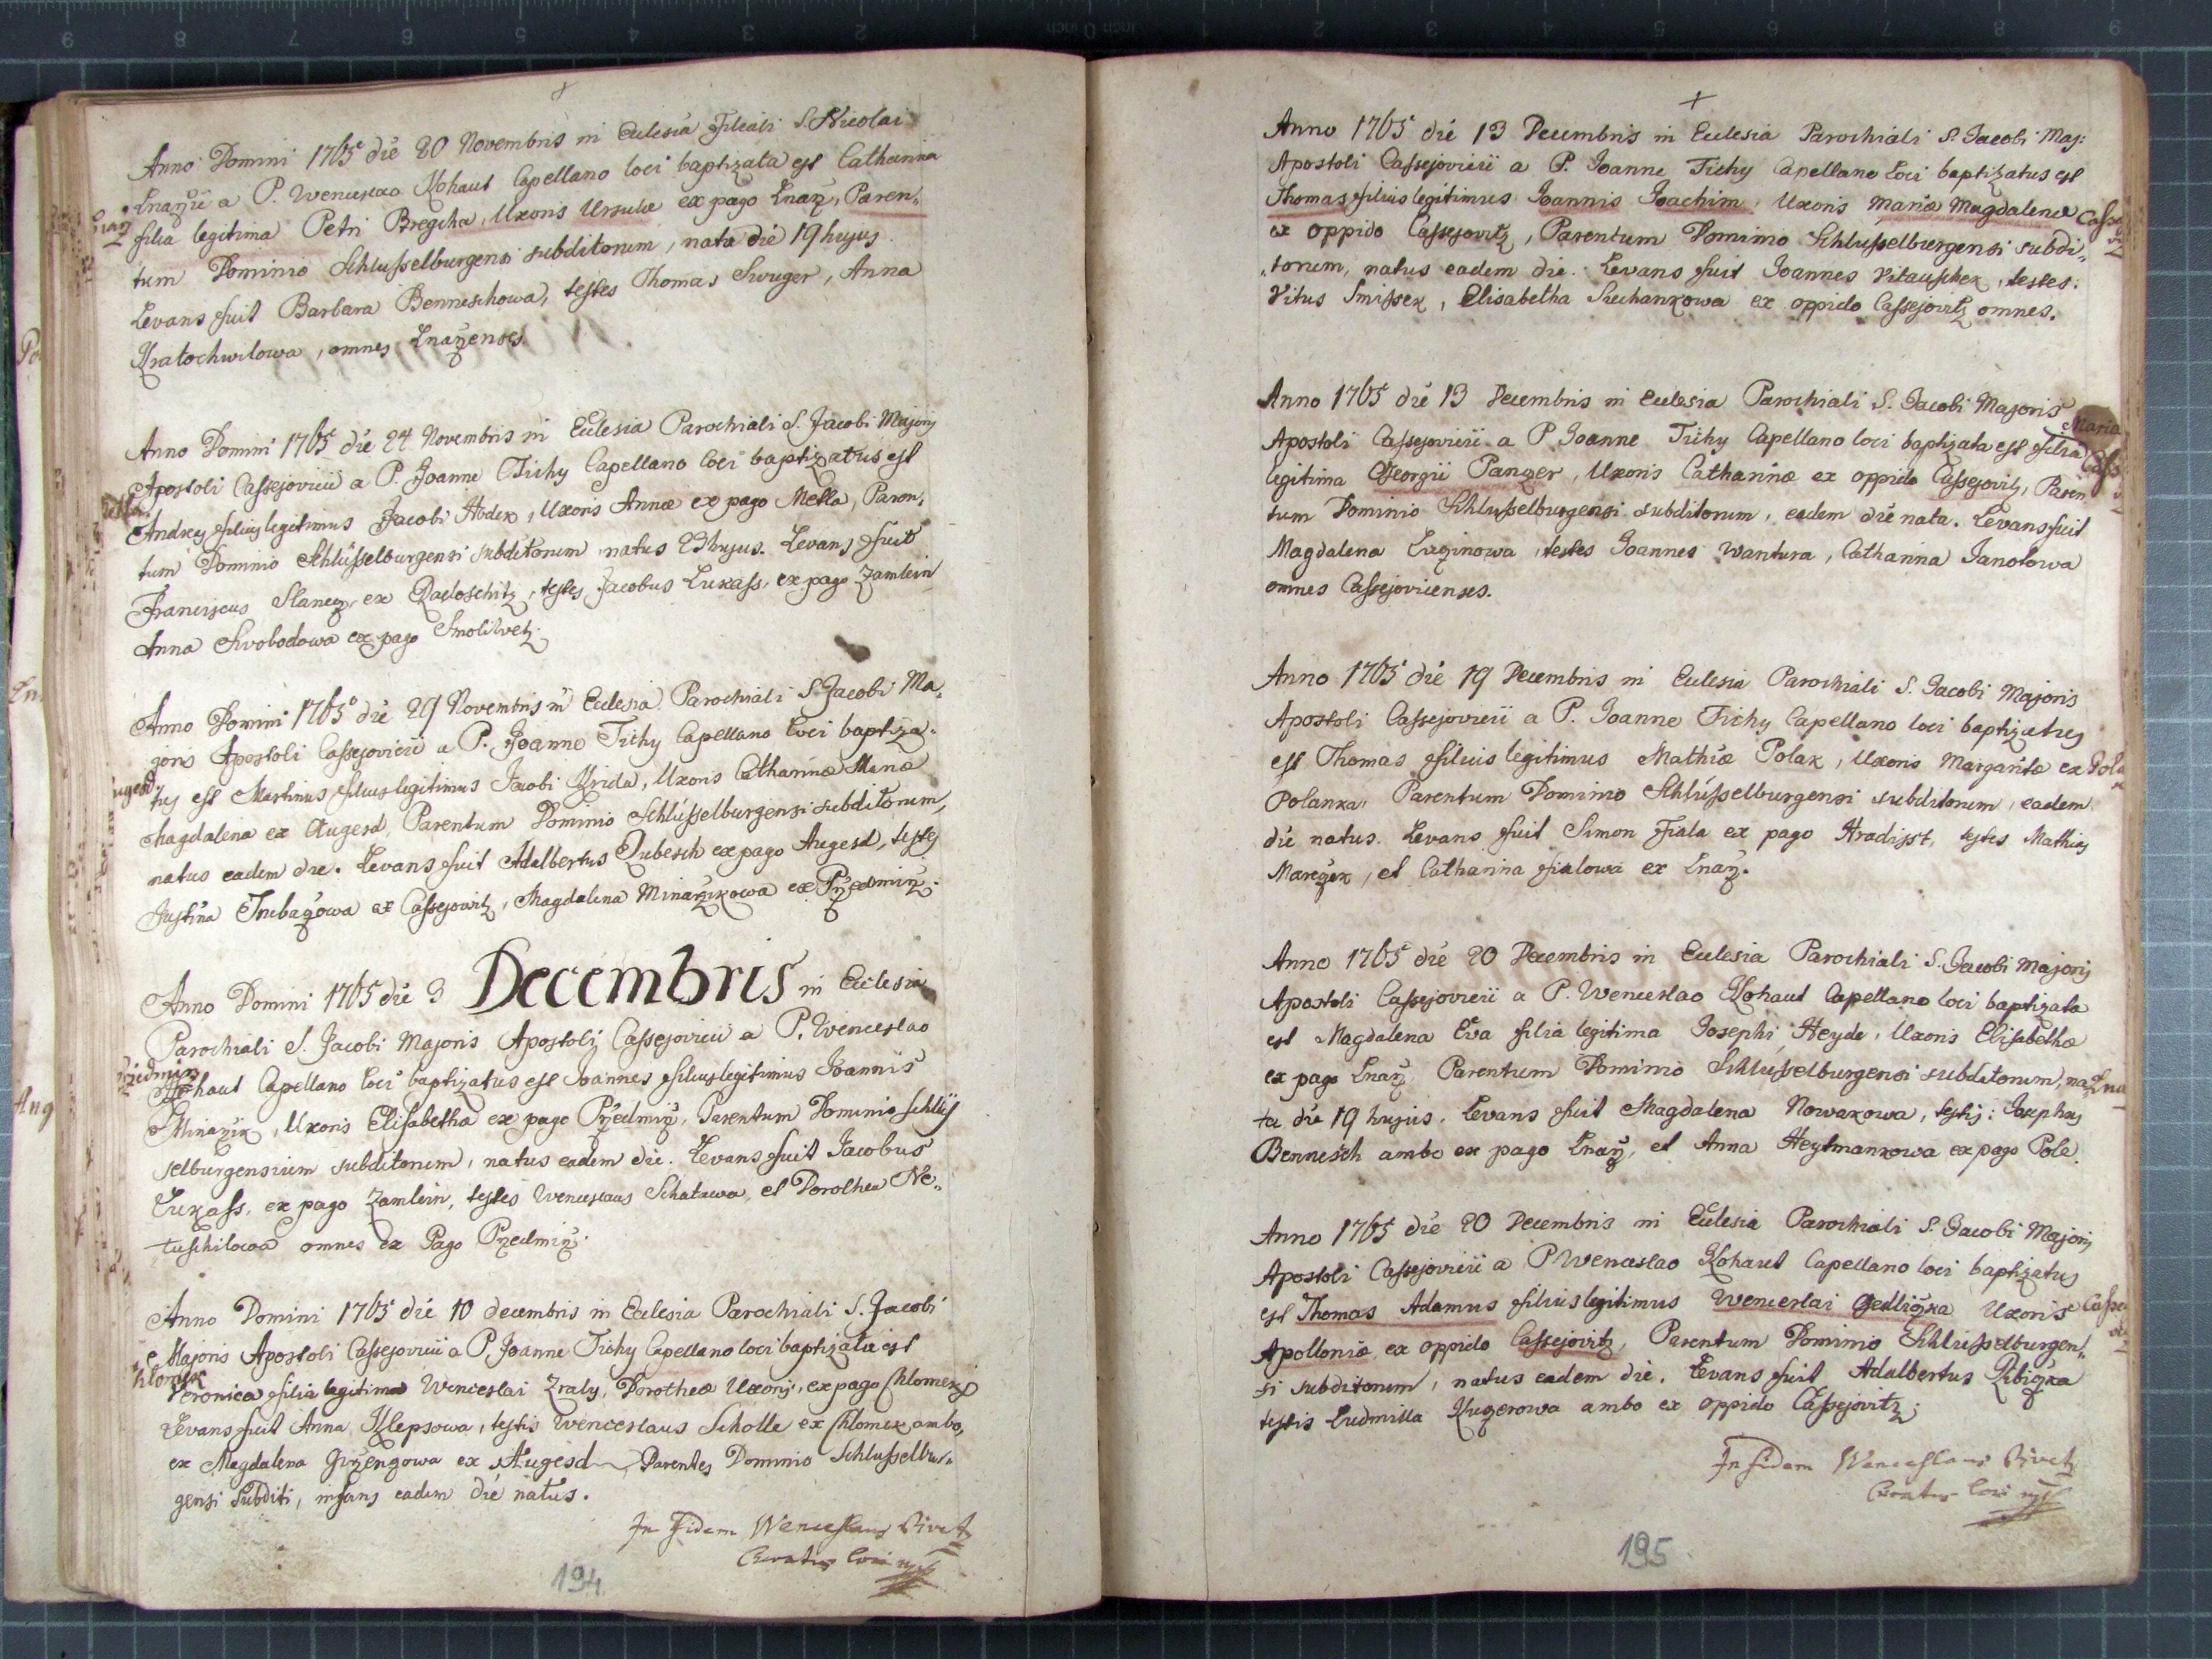 Anno Domini 1765 die 20 Novembris in Eclesia Filiali S. Nicolai
Lnarzii a P. Wenceslao Kohaut Capellano loci baptizata est Catharina
filia legitima Petri Bregcha, Uxoris Ursulæ ex pago Lnarz, Paren„
tum Dominio Schlusselburgensi subditorum, nata die 19 hujus.
Levans fuit Barbara Benneschowa, testes Thomas Swuger, Anna
Kratochwilowa, omnes Lnarzenses.
Anno Domini 1765 die 24 Novembris in Eclesia Parochiali S. Jacobi Majoris
Apostoli Cassejovicii a P. Joanne Tichy Capellano loci baptizatus est
Andreas filius legitimus Jacobi Hodek, Uxoris Annæ ex pago Metla, Paren„
tum Dominio Schlüsselburgensi subditorum natus 23 hujus. Levans fuit
Franciscus Slanecz, ex Radoschitz, testes Jacobus Lukass, ex pago Zamlein
Anna Swobodowa ex pago Smoliwetz.
Anno Domini 1765 die 29 Novembris in Eclesia Parochiali S. Jacobi Ma„
joris Apostoli Cassejovicii a P. Joanne Tichy Capellano loci baptiza„
augesd
tus est Martinus filius legitimus Jacobi Krida, Uxoris Catharinæ Mariæ
Magdalena ex Augesd, Parentum Dominio Schlüsselburgensi subditorum,
natus eadem die. Levans fuit Adalbertus Rubesch ex pago Augesd, testes
Justina Trubazowa ex Cassejovitz, Magdalena Minarzikowa ex Przedmirz.
Anno Domini 1765 die 3 Decembris in Eclesia
Parochiali S. Jacobi Majoris Apostoli Cassejovicii a P. Wenceslao
Kohaut Capellano loci baptizatus est Joannes filius legitimus Joannis
Minarzik, Uxoris Elisabetha ex pago Przedmirz, Parentum Dominio Schlüs
selburgensium subditorum, natus eadem die. Levans fuit Jacobus
Lukass, ex pago Zamlein, testes Wenceslaus Schatawa, et Dorothea Ne„
tuschilowa omnes ex Pago Przedmirz.
Anno Domini 1765 die 10 decembris in Eclesia Parochiali S. Jacobi
Majoris Apostoli Cassejovicii a P. Joanne Tichy Capellano loci baptizata est
Chlomek
Veronica filia legitima Wenceslai Zraly, Dorotheæ Uxoris, ex pago Chlomek,
Levans fuit Anna Klepsowa, testis Wenceslaus Scholle ex Chlomek ambo,
ex Magdalena Girzengowa ex Augesd Parentes Dominio Schlusselbur„
gensi Subditi, infans eadem die natus.
In Fidem Wenceslaus Sivetz
Curatus loci mpp
194
Anno 1765 die 13 Decembris in Eclesia Parochiali S. Jacobi Maj:
Apostoli Cassejovicii a P. Joanne Tichy Capellano loci baptizatus est
Thomas filius legitimus Joannis Joachim, Uxoris Mariæ Magdalenæ
ex oppido Cassejovitz, Parentum Dominio Schlusselburgensi subdi„
„torum, natus eadem die. Levans fuit Joannes Vitauschek, testes:
Vitus Smissek, Elisabetha Suchankowa ex oppido Cassejovitz omnes.
Anno 1765 die 13 Decembris in Eclesia Parochiali S. Jacobi Majoris
Maria
Apostoli Cassejovicii a P. Joanne Tichy Capellano loci baptizata est filia
legitima Georgii Panzer, Uxoris Catharinæ ex oppido Cassejovitz, Paren
tum Dominio Schlusselburgensi subditorum, eadem die nata. Levans fuit
Magdalena Luzinowa, testes Joannes Wantura, Catharina Janotowa
omnes Cassejovicenses.
Anno 1765 die 19 Decembris in Eclesia Parochiali S. Jacobi Majoris
Apostoli Cassejovicii a P. Joanne Tichy Capellano loci baptizatus
est Thomas filius legitimus Mathiæ Polak, Uxoris Margaritæ ex
Polanka, Parentum Dominio Schlüsselburgensi subditorum, eadem
die natus. Levans fuit Simon Fiala ex pago Hradisst, testes Mathias
Marezek, et Catharina Fialowa ex Lnarz.
Anno 1765 die 20 Decembris in Eclesia Parochiali S. Jacobi Majoris
Apostoli Cassejovicii a P. Wenceslao Kohaut Capellano loci baptizata
est Magdalena Eva filia legitima Josephi Heyde, Uxoris Elisabethæ
ex pago Lnarz, Parentum Dominio Schlüsselburgensi subditorum, na„
ta die 19 hujus. Levans fuit Magdalena Nowakowa, testis: Josephus
Bennesch ambo ex pago Lnarz, et Anna Heytmankowa ex pago Pole.
Anno 1765 die 20 Decembris in Eclesia Parochiali S. Jacobi Majoris
Apostoli Cassejovicii a P. Wenceslao Kohaut Capellano loci baptizatus
est Thomas Adamus filius legitimus Wenceslai Gedliczka Uxoris
Apolloniæ ex oppido Cassejovitz, Parentum Dominio Schlusselburgen„
si subditorum, natus eadem die. Levans fuit Adalbertus Ribiczka
testis Ludmilla Kugerowa ambo ex oppido Cassejovitz.
In fidem Wenceslaus Sivetz
Curatus loci mpp
195